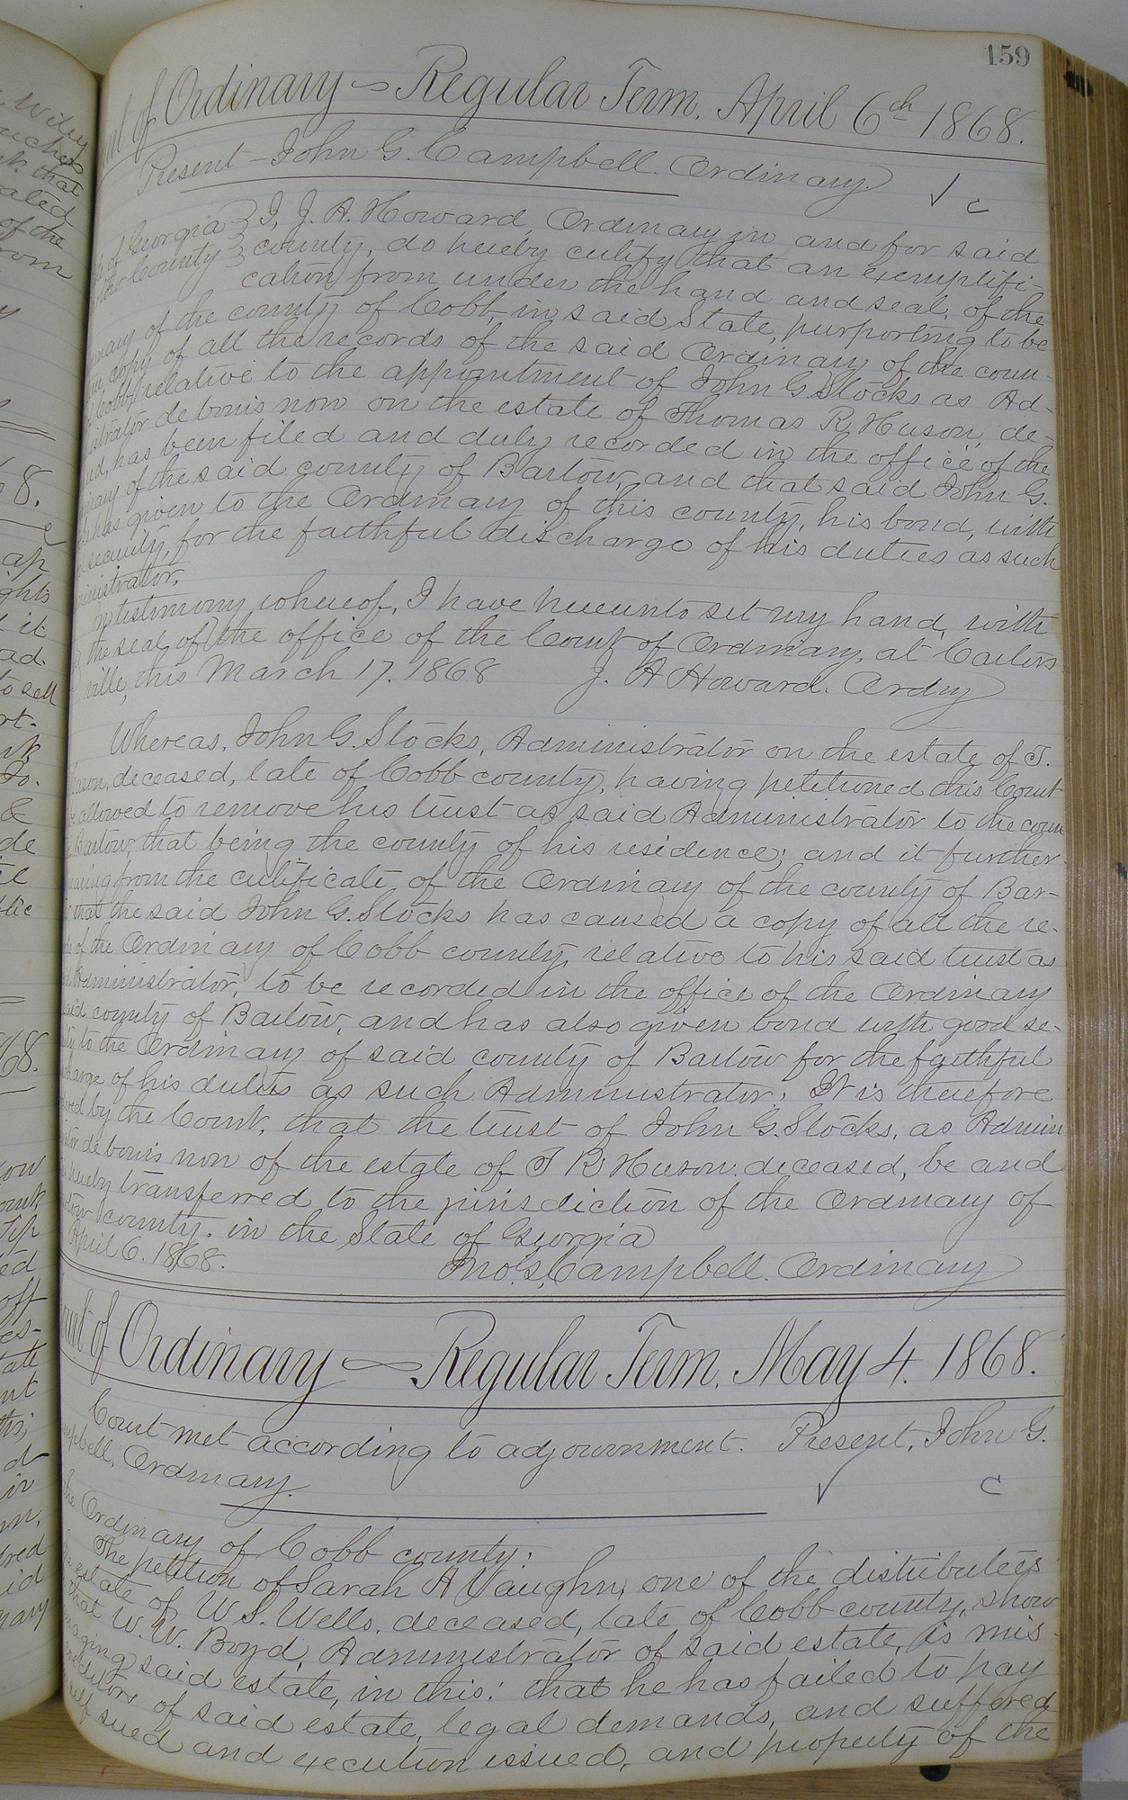 159
of Ordinary — Regular Term. April 6th 1868.
Present – John G. Campbell. Ordinary.
of Georgia } I, J. A. Howard, Ordinary in and for said
County } county, do hereby certify that an exemplifi-
cation from under the hand and seal, of the
of the county of Cobb, in said State, purporting to be
copy of all the records of the said Ordinary of the coun-
Cobb, relative to the appointment of John G Stocks as Ad-
de bonis non on the estate of Thomas R. Huson, de-
has been filed and duly recorded in the office of the
of the said county of Bartow, and that said John G.
has given to the Ordinary of this county, his bond, with
security, for the faithful discharge of his duties as such
In testimony whereof, I have hereunto set my hand, with
the seal of the office of the Court of Ordinary, at Carters-
ville, this March 17. 1868 J. A Howard. Ordry
Whereas, John G. Stocks, Administrator on the estate of T.
deceased, late of Cobb county, having petitioned this Court
allowed to remove his trust as said Administrator to the coun
Bartow, that being the county of his residence; and it further
from the certificate of the Ordinary of the county of Bar-
that the said John G. Stocks has caused a copy of all the re-
of the Ordinary of Cobb county, relative to his said trust as
Administrator, to be recorded in the office of the Ordinary
said county of Bartow, and has also given bond with good se-
to the Ordinary of said county of Bartow for the faithful
of his duties as such Administrator: It is therefore
by the Court, that the trust of John G. Stocks, as Admin
de bonis non of the estate of T R Huson. deceased, be and
hereby transferred to the jurisdiction of the Ordinary of
county. in the State of Georgia
April 6. 1868. Jno. G. Campbell. Ordinary
of Ordinary — Regular Term. May 4. 1868.
Court met according to adjournment. Present, John G.
Ordinary.
Ordinary of Cobb county:
The petition of Sarah A Vaughn, one of the distributees
estate of W. S. Wells, deceased, late of Cobb county, show
that W. W. Boyd, Administrator of said estate, is mis-
said estate, in this: that he has failed to pay
of said estate, legal demands, and suffered
sued and execution issued, and property of the